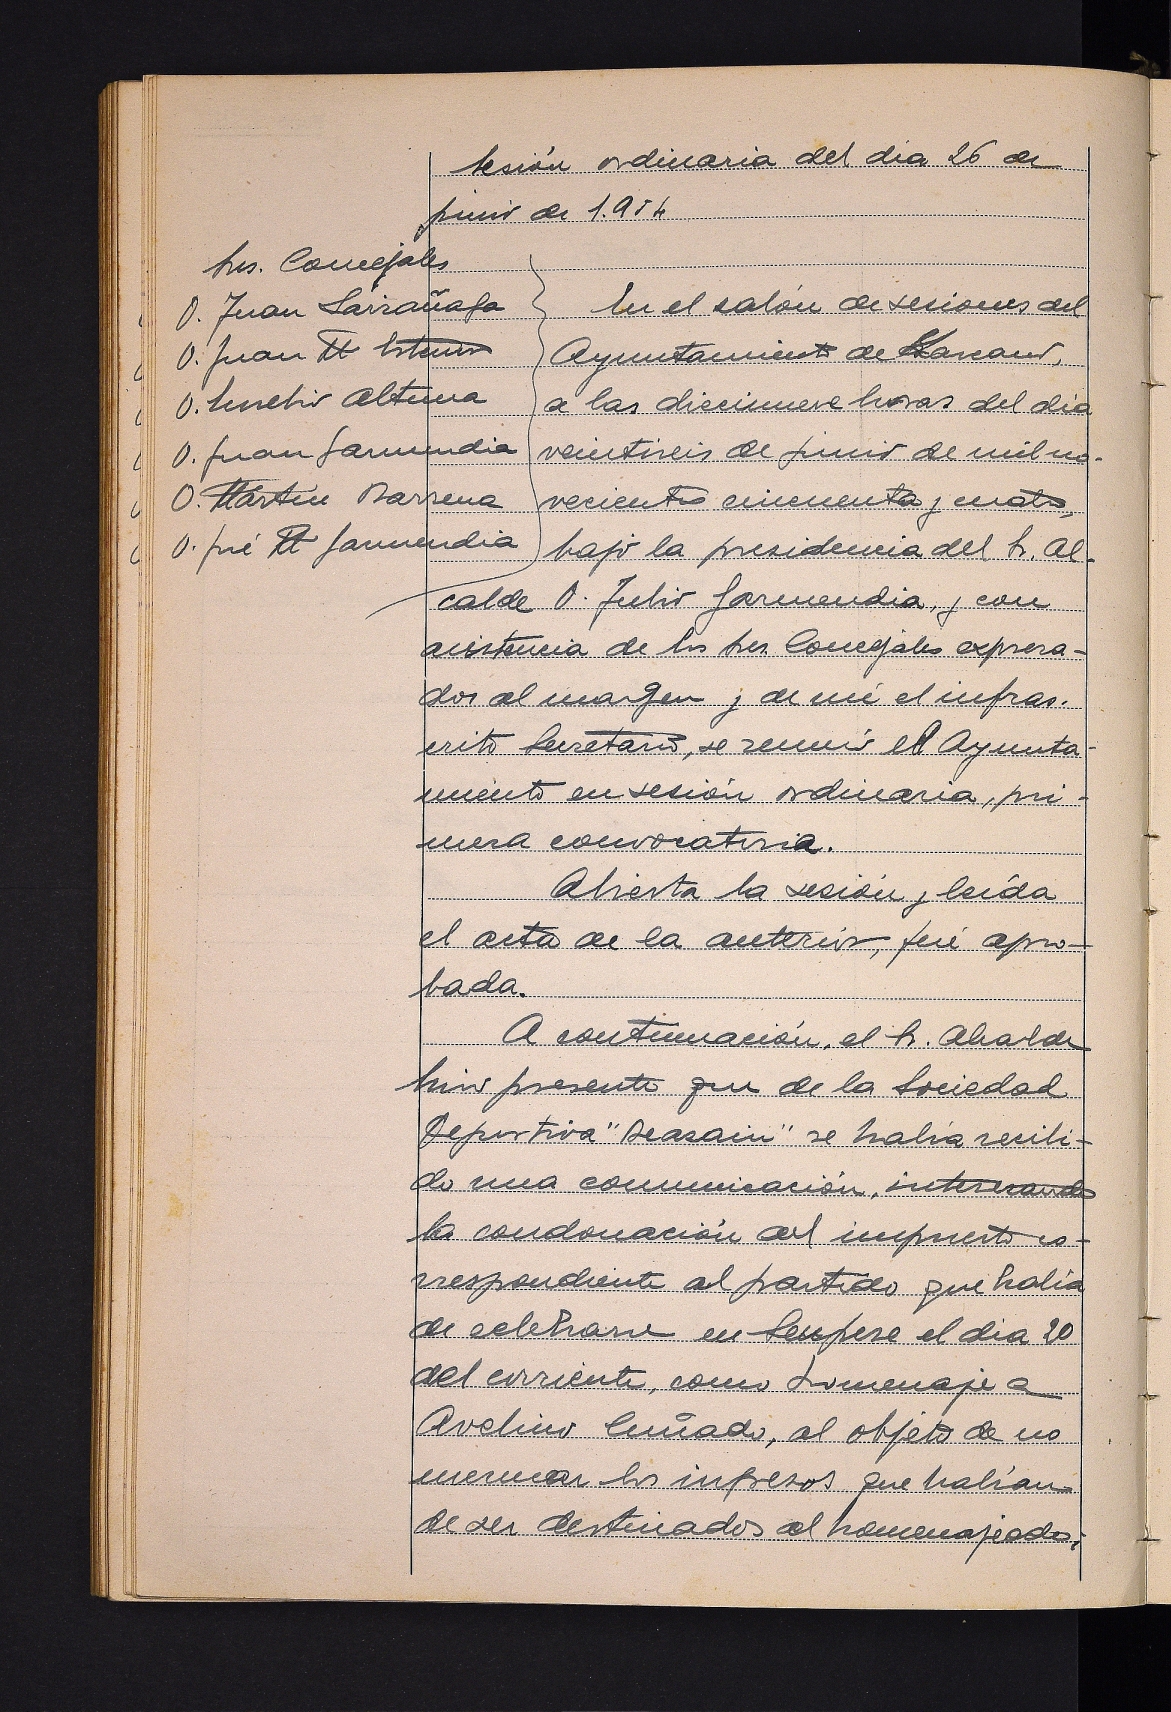 Sesión ordinaria del día 26 de
junio de 1.954
Sres. Concejales
D. Juan Larrañaga
D. Juan Mª
D. Eusebio Altuna
D. Juan Garmendia
D. Martín Barrena
D. José Mª Garmendia
En el salón de sesiones del
Ayuntamiento de Lazcano,
a las diecinueve horas del día
veintiseis de junio de mil no-
vecientos cincuenta y cuatro,
bajo la presidencia del Sr. Al-
calde D. Julio Garmendia, y con
asistencia de los Sres. Concejales expresa-
dos al margen y de mí el infras-
crito Secretario, se reunió el Ayunta-
miento en sesión ordinaria, pri-
mera convocatoria.
Abierta la sesión y leída
el acta de la anterior, fué apro-
bada.
A continuación, el Sr. Alcalde
hizo presente que de la Sociedad
Deportiva "Beasain" se había recibi-
do una comunicación, interesando
la condonación del impuesto co-
rrespondiente al partido que había
de celebrarse en Senpere el día 20
del corriente, como homenaje a
Avelino Cuñado, al objeto de no
mermar los ingresos que habían
de ser destinados al homenajeado;